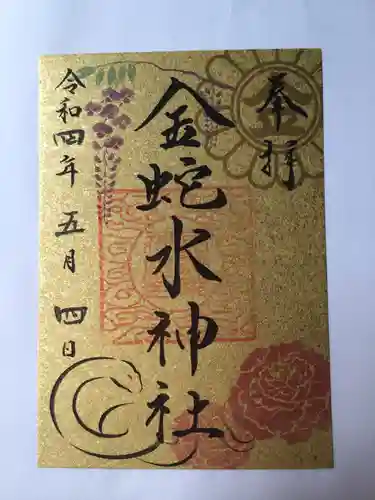 奉拝
金蛇水神社
令和四年 五月 四日